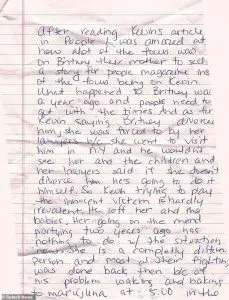 After reading Kevin's article
in People I was amazed at
how alot of the focus was
on Britney their mother to sell
a story for people magazine ins
of the focus being on Kevin
What happened to Britney was
a year ago and people need to
get with the times And as for
Kevin saying Britney divorcing
him, she was forced to by her
lawyers b/c she went to visit
him in NY and he wouldn't
see her and the children and
her lawyers said if she doesn't
divorce him he's going to do it
himself. So Kevin trying to play
the innocent victim is hardly
He left her and the
babies, Her going on the
partying two years ago has
nothing to do w/ the situation
now she is a completely differ
person and most of their fighting
was done back then b/c of
his problem waking and baking
to marujuna at 5:00 in the